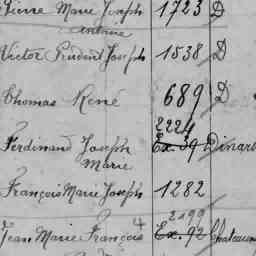 Pierre Marie Joseph 1723 D
Antoine
Victor Prudent Joseph 1538 D
Thomas René 689 D
2224
Ferdinand Joseph Ex. 39 Dinard
Marie
François Marie Joseph 1282
2199
Jean Marie François Ex. 92